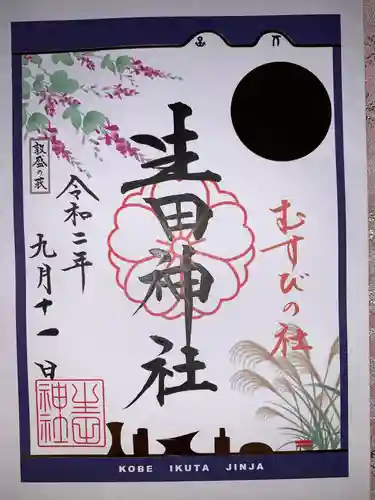 むすびの社
生田神社
敦盛の萩
令和二年
九月十一日
生田神社
KOBE IKUTA JINJA